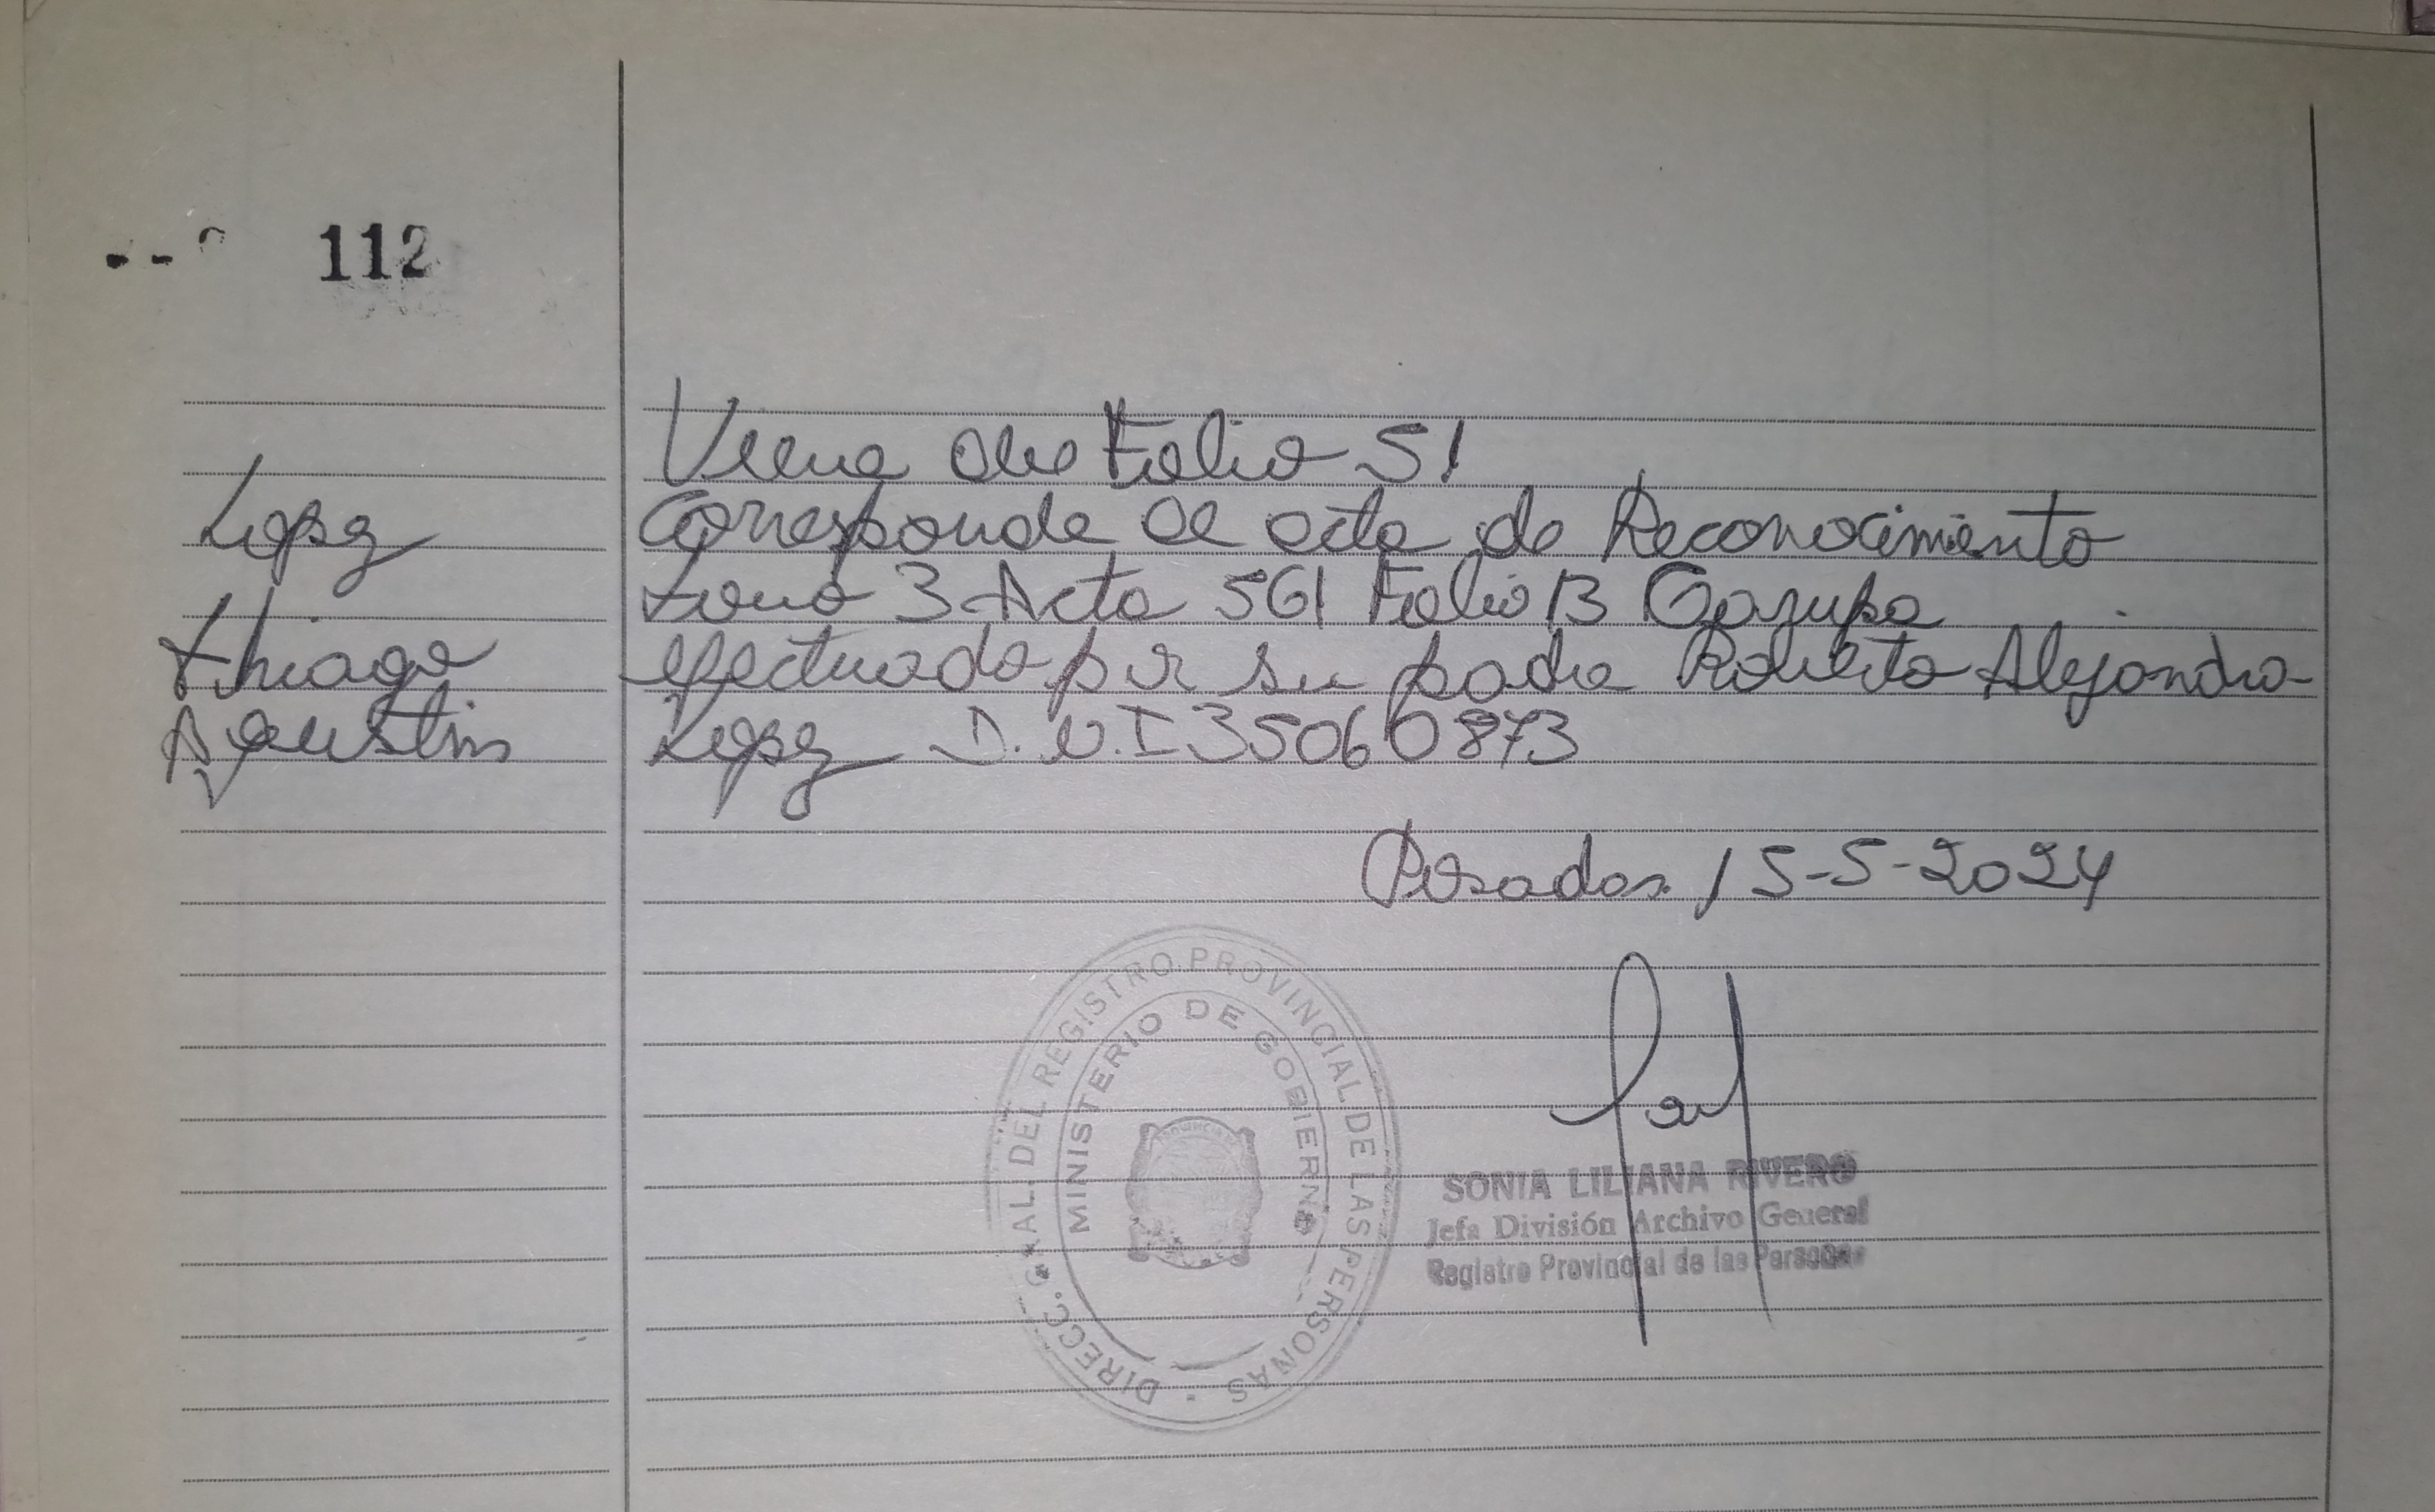 112
Viene del Folio 51
Lopez
Corresponde al acta de Reconocimiento
Tomo 3 Acta 561 Folio 13 Garupa
Thiago
efectuado por su padre Roberto Alejandro
Agustin
Lopez D.N.I 35060873
Posadas 15-5-2024
DIRECC. GRAL. DEL REGISTRO PROVINCIAL DE LAS PERSONAS
MINISTERIO DE GOBIERNO
SONIA LILIANA RIVERO
Jefa División Archivo General
Registro Provincial de las Personas